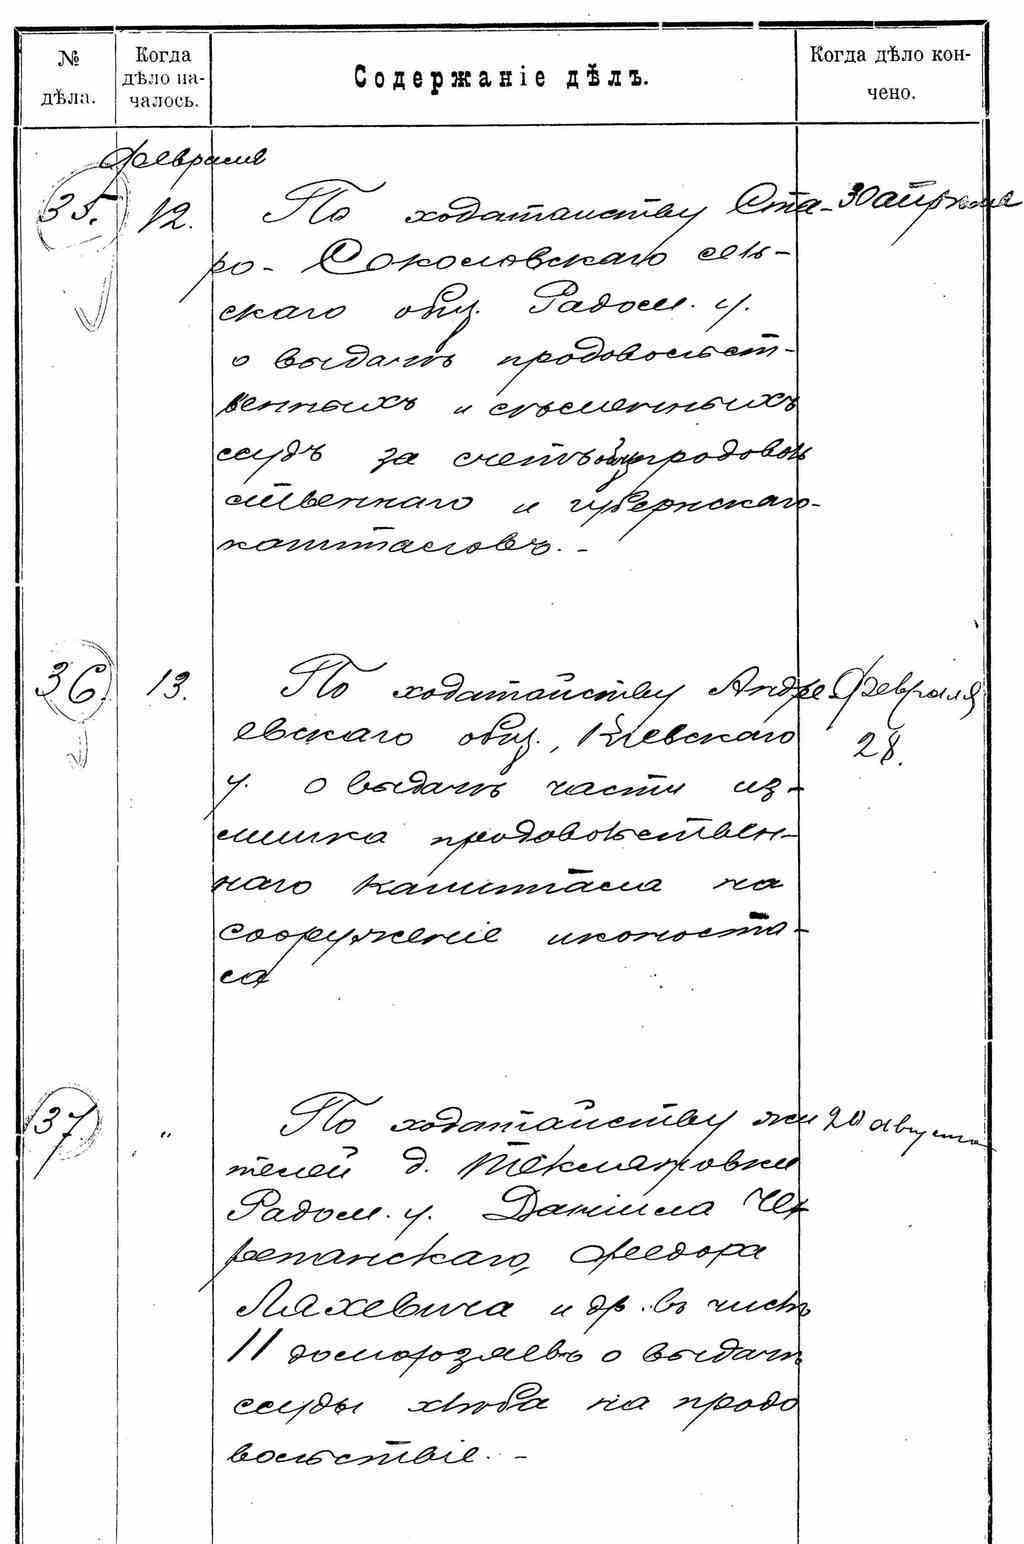 № дѣла. Когда дѣло на- чалось. Содержаніе дѣлъ. Когда дѣло кон- чено.
Февраля
35. 12. По ходатайству Ста- 30 апрѣля
ро-Соколовскаго сель-
скаго общ. Радом. у.
о выдачѣ продовольст-
венныхъ и сѣменныхъ
ссудъ за счетъ общ. продоволь
ственнаго и губернскаго
капиталовъ.-
36. 13. По ходатайству Андре- Февраля
евскаго общ., Кіевскаго 28.
у. о выдачѣ части из-
лишка продовольствен-
наго капитала на
сооруженіе иконоста-
са
37. " По ходатайству жи 20 августа
телей д.
Радом. у. Даніила Че
репанскаго, Федора
Ляхевича и др. въ числѣ
11 домохозяевъ о выдачѣ
ссуды хлѣба на продо
вольствіе.-